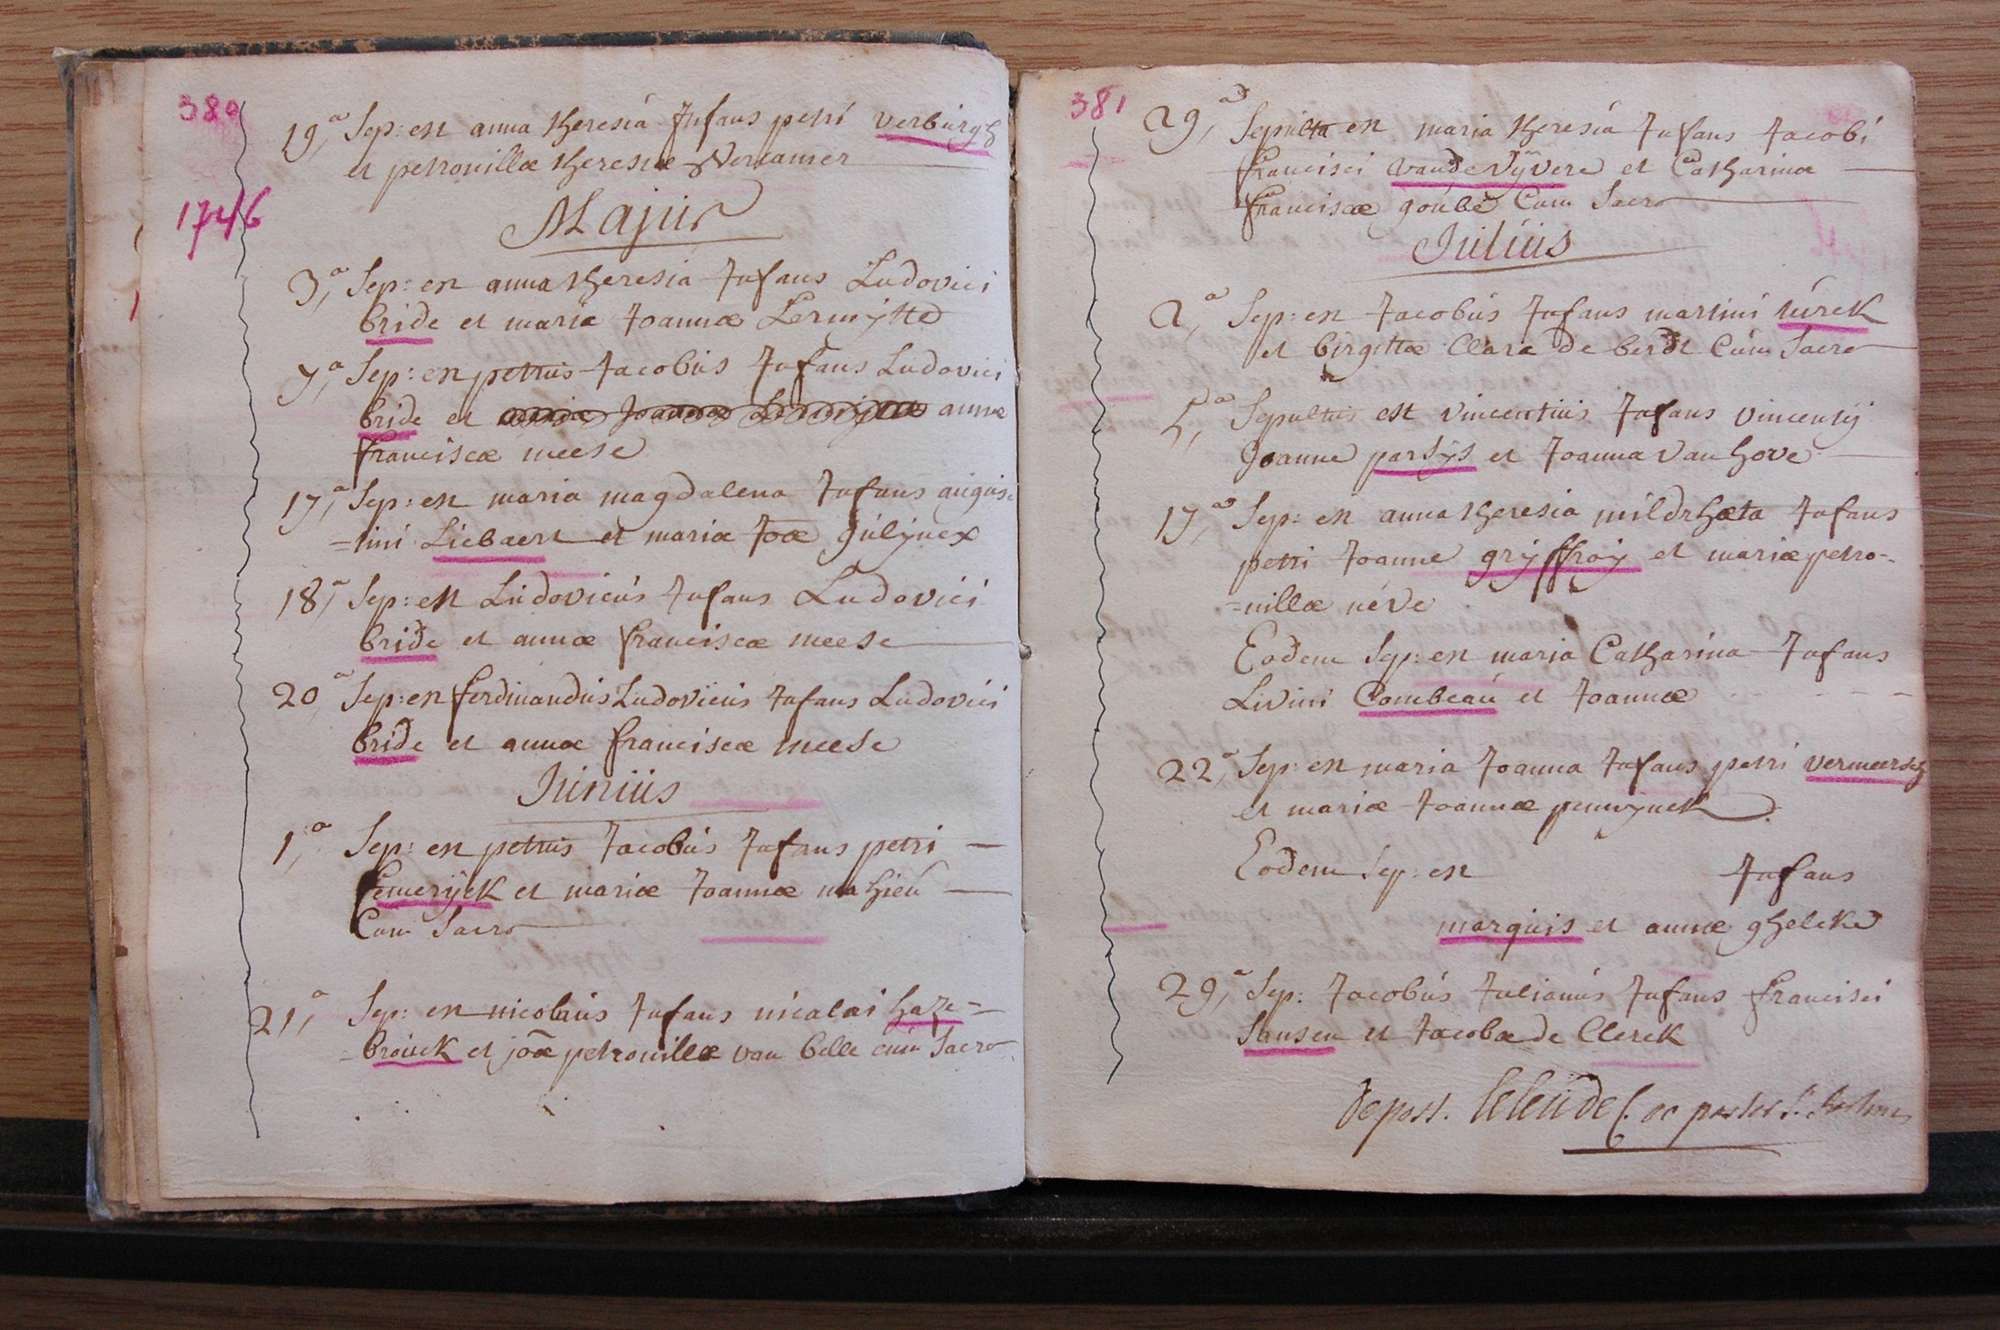 380
19,a Sep: est anna theresia Infans petri verburgh
et petronillæ theresiæ Vercamer
1746
Majus
3,a Sep: est anna theresia Infans Ludovici
bride et maria Joannæ Lermytte
7,a Sep: est petrus Jacobus Infans Ludovici
bride et mariæ Joannæ Lermytte annæ
franciscæ meese
17,a Sep: est maria magdalena Infans augus-
=tini Liebaert et mariæ Joæ gulynex
18,a Sep: est Ludovicus Infans Ludovici
bride et annæ franciscæ meese
20,a Sep: est ferdinandus Ludovicus Infans Ludovici
bride et annæ franciscæ meese
Junius
1,a Sep: est petrus Jacobus Infans petri
emeryck et mariæ Joannæ mahieu
Cum Sacro
21,a Sep: est nicolaus Infans nicolai haze=
=brouck et joæ petronillæ van belle cum Sacro
381
29,a Sepulta est maria theresia Infans Jacobi
francisci vande Vyvere et Catharinæ
franciscæ goube Cum Sacro
Julius
2,a Sep: est Jacobus Infans martini turck
et birgittæ Clara de berdt Cum Sacro
5,a Sepultus est vincentius Infans vincentij
Joanne parsys et Joanna Van hove
17,a Sep: est anna theresia mildrhæta Infans
petri Joanne gryffroy et mariæ petro-
=nillæ néve
Eodem Sep: est maria Catharina Infans
Livini Combeau et Joannæ
22,a Sep: est maria Joanna Infans petri vermeersch
et mariæ Joannæ penynck
Eodem Sep: est Infans
marquis et annæ ghelcke
29,a Sep: Jacobus Julianus Infans francisci
Jansen et Jacobæ de Clerck